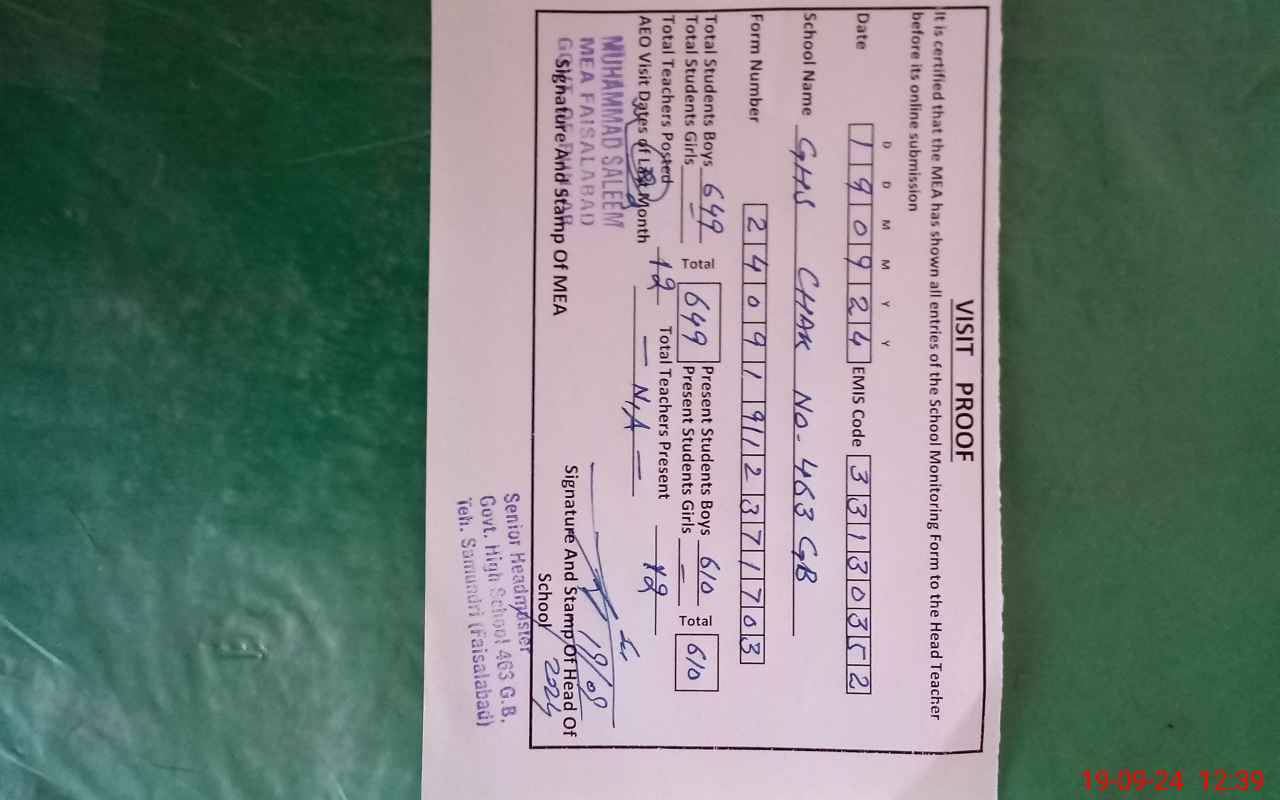 VISIT PROOF
It is certified that the MEA has shown all entries of the School Monitoring Form to the Head Teacher
before its online submission
D D M M Y Y
Date 190924 EMIS Code 33130352
School Name GHS CHAK NO-463 GB
Form Number 240919112371703
Total Students Boys 649 Total 649 Present Students Boys 610 Total 610
Total Students Girls — Present Students Girls —
Total Teachers Posted 12 Total Teachers Present 12
AEO Visit Dates of Last Month — N/A —
MUHAMMAD SALEEM
MEA FAISALABAD
Signature And Stamp Of MEA
19/09
2024
Signature And Stamp Of Head Of
School
Senior Headmaster
Govt. High School 463 G.B.
Teh. Samundri (Faisalabad)
19-09-24 12:39